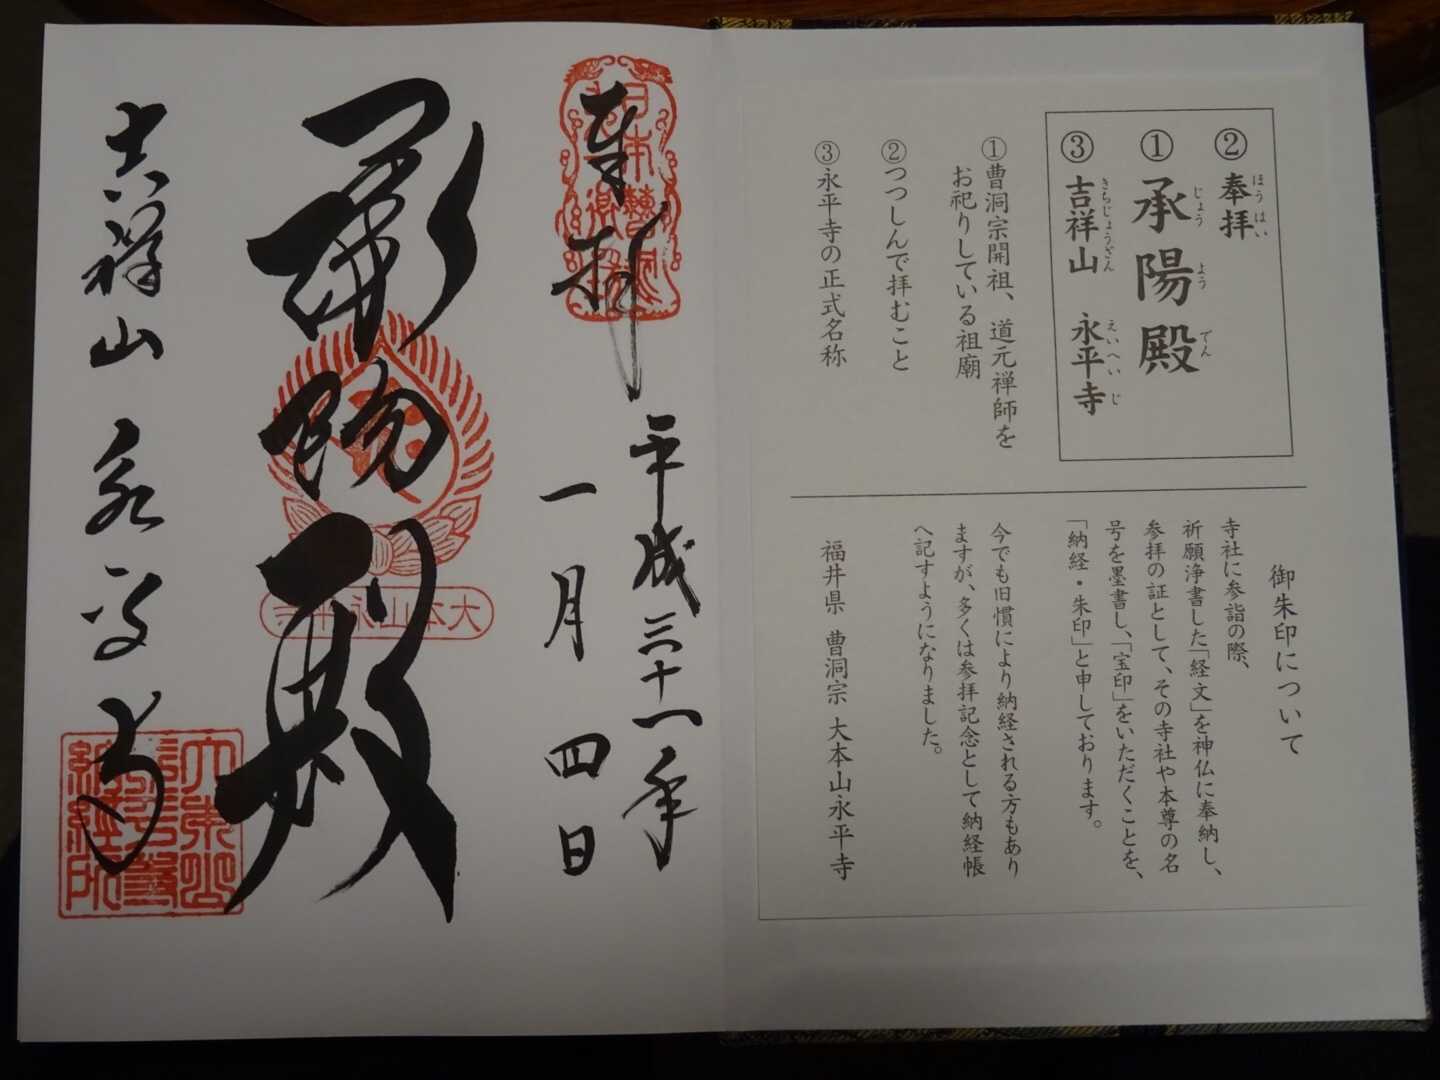 ②奉拝
ほうはい
①承陽殿
じょうようでん
③吉祥山 永平寺
きちじょうざん えいへいじ
①曹洞宗開祖、道元禅師を
お祀りしている祖廟
②つつしんで拝むこと
③永平寺の正式名称
御朱印について
寺社に参詣の際、
祈願浄書した「経文」を神仏に奉納し、
参拝の証として、その寺社や本尊の名
号を墨書し、「宝印」をいただくことを、
「納経・朱印」と申しております。
今でも旧慣により納経される方もあり
ますが、多くは参拝記念として納経帳
へ記すようになりました。
福井県 曹洞宗 大本山永平寺
奉拝
平成三十一年
一月四日
承陽殿
大本山永平寺
吉祥山永平寺